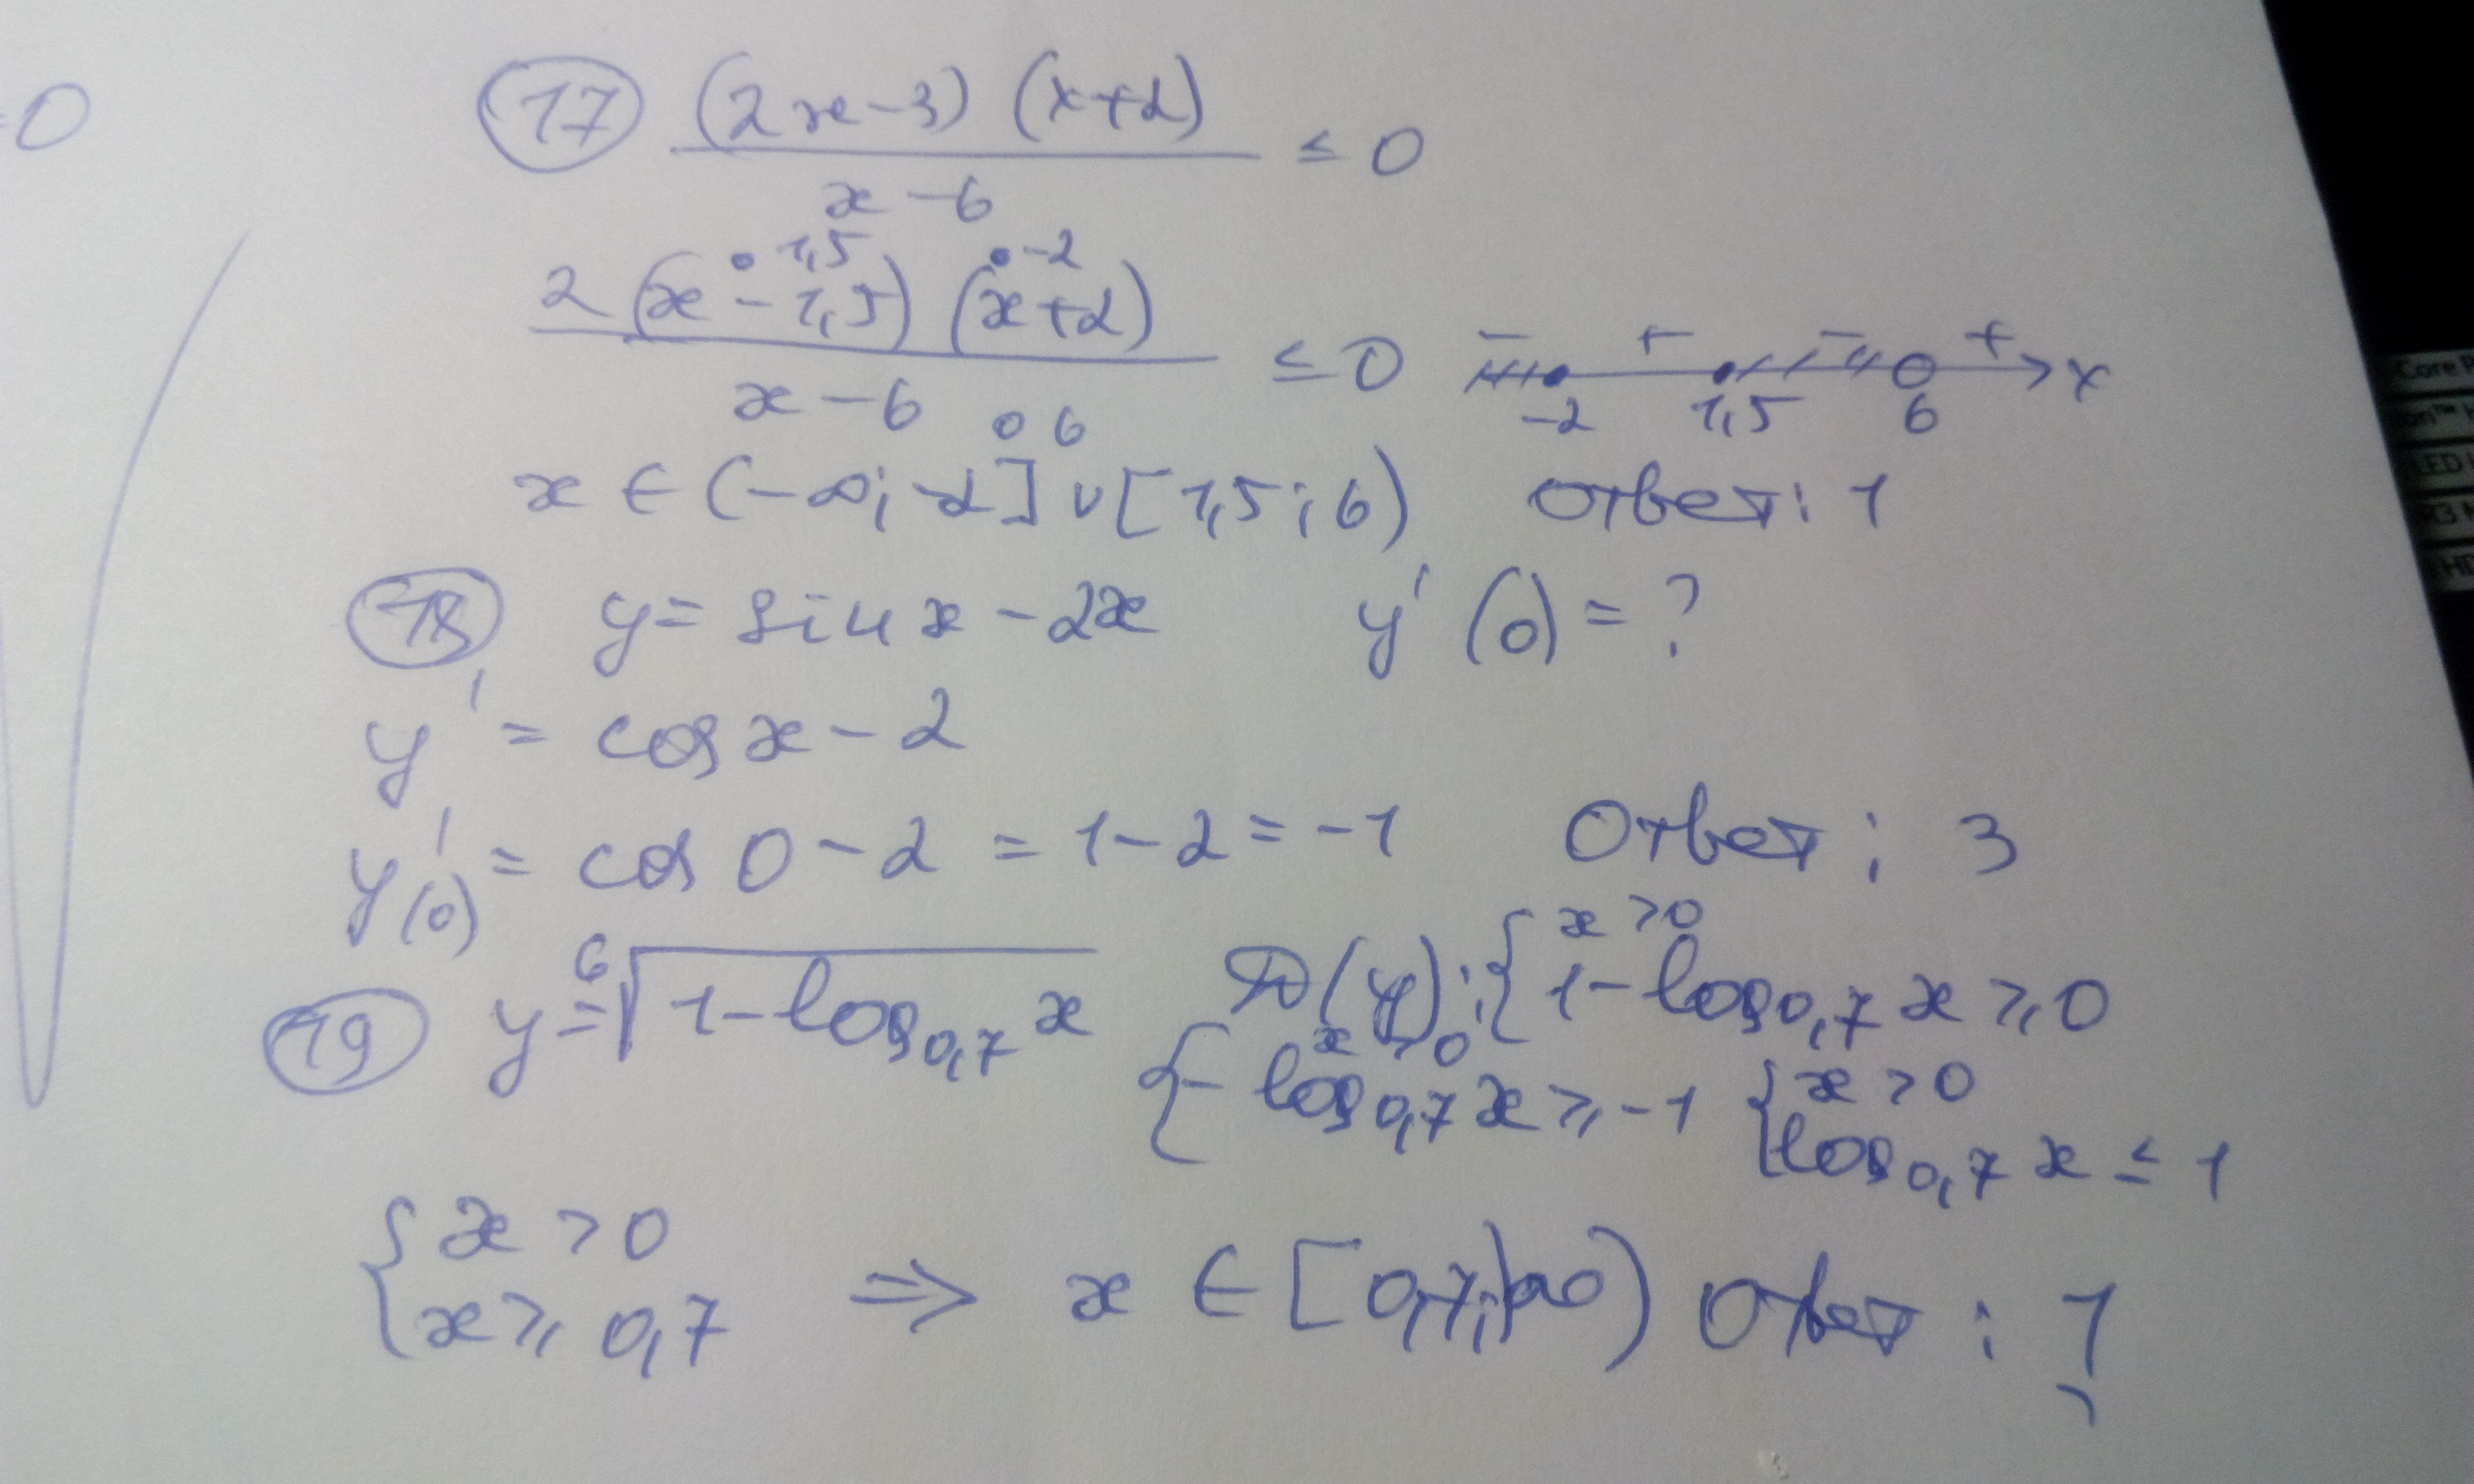 =0
17 (2x-3) (x+2) / x-6 ≤ 0
2 (x-1,5) (x+2) / x-6 ≤ 0
• 1,5 • -2
о 6
- + - + x
-2 1,5 6
x ∈ (-∞; -2] ∪ [1,5; 6) Ответ: 1
18 y = sin x - 2x y'(0) = ?
y' = cos x - 2
y'(0) = cos 0 - 2 = 1 - 2 = -1 Ответ: 3
19 y = ⁶√(1 - log₀,₇ x) D(y): { x > 0
1 - log₀,₇ x ≥ 0
{ x > 0
- log₀,₇ x ≥ -1 { x > 0
log₀,₇ x ≤ 1
{ x > 0
x ≥ 0,7 ⇒ x ∈ [0,7; ∞) Ответ: 1
Core
LED